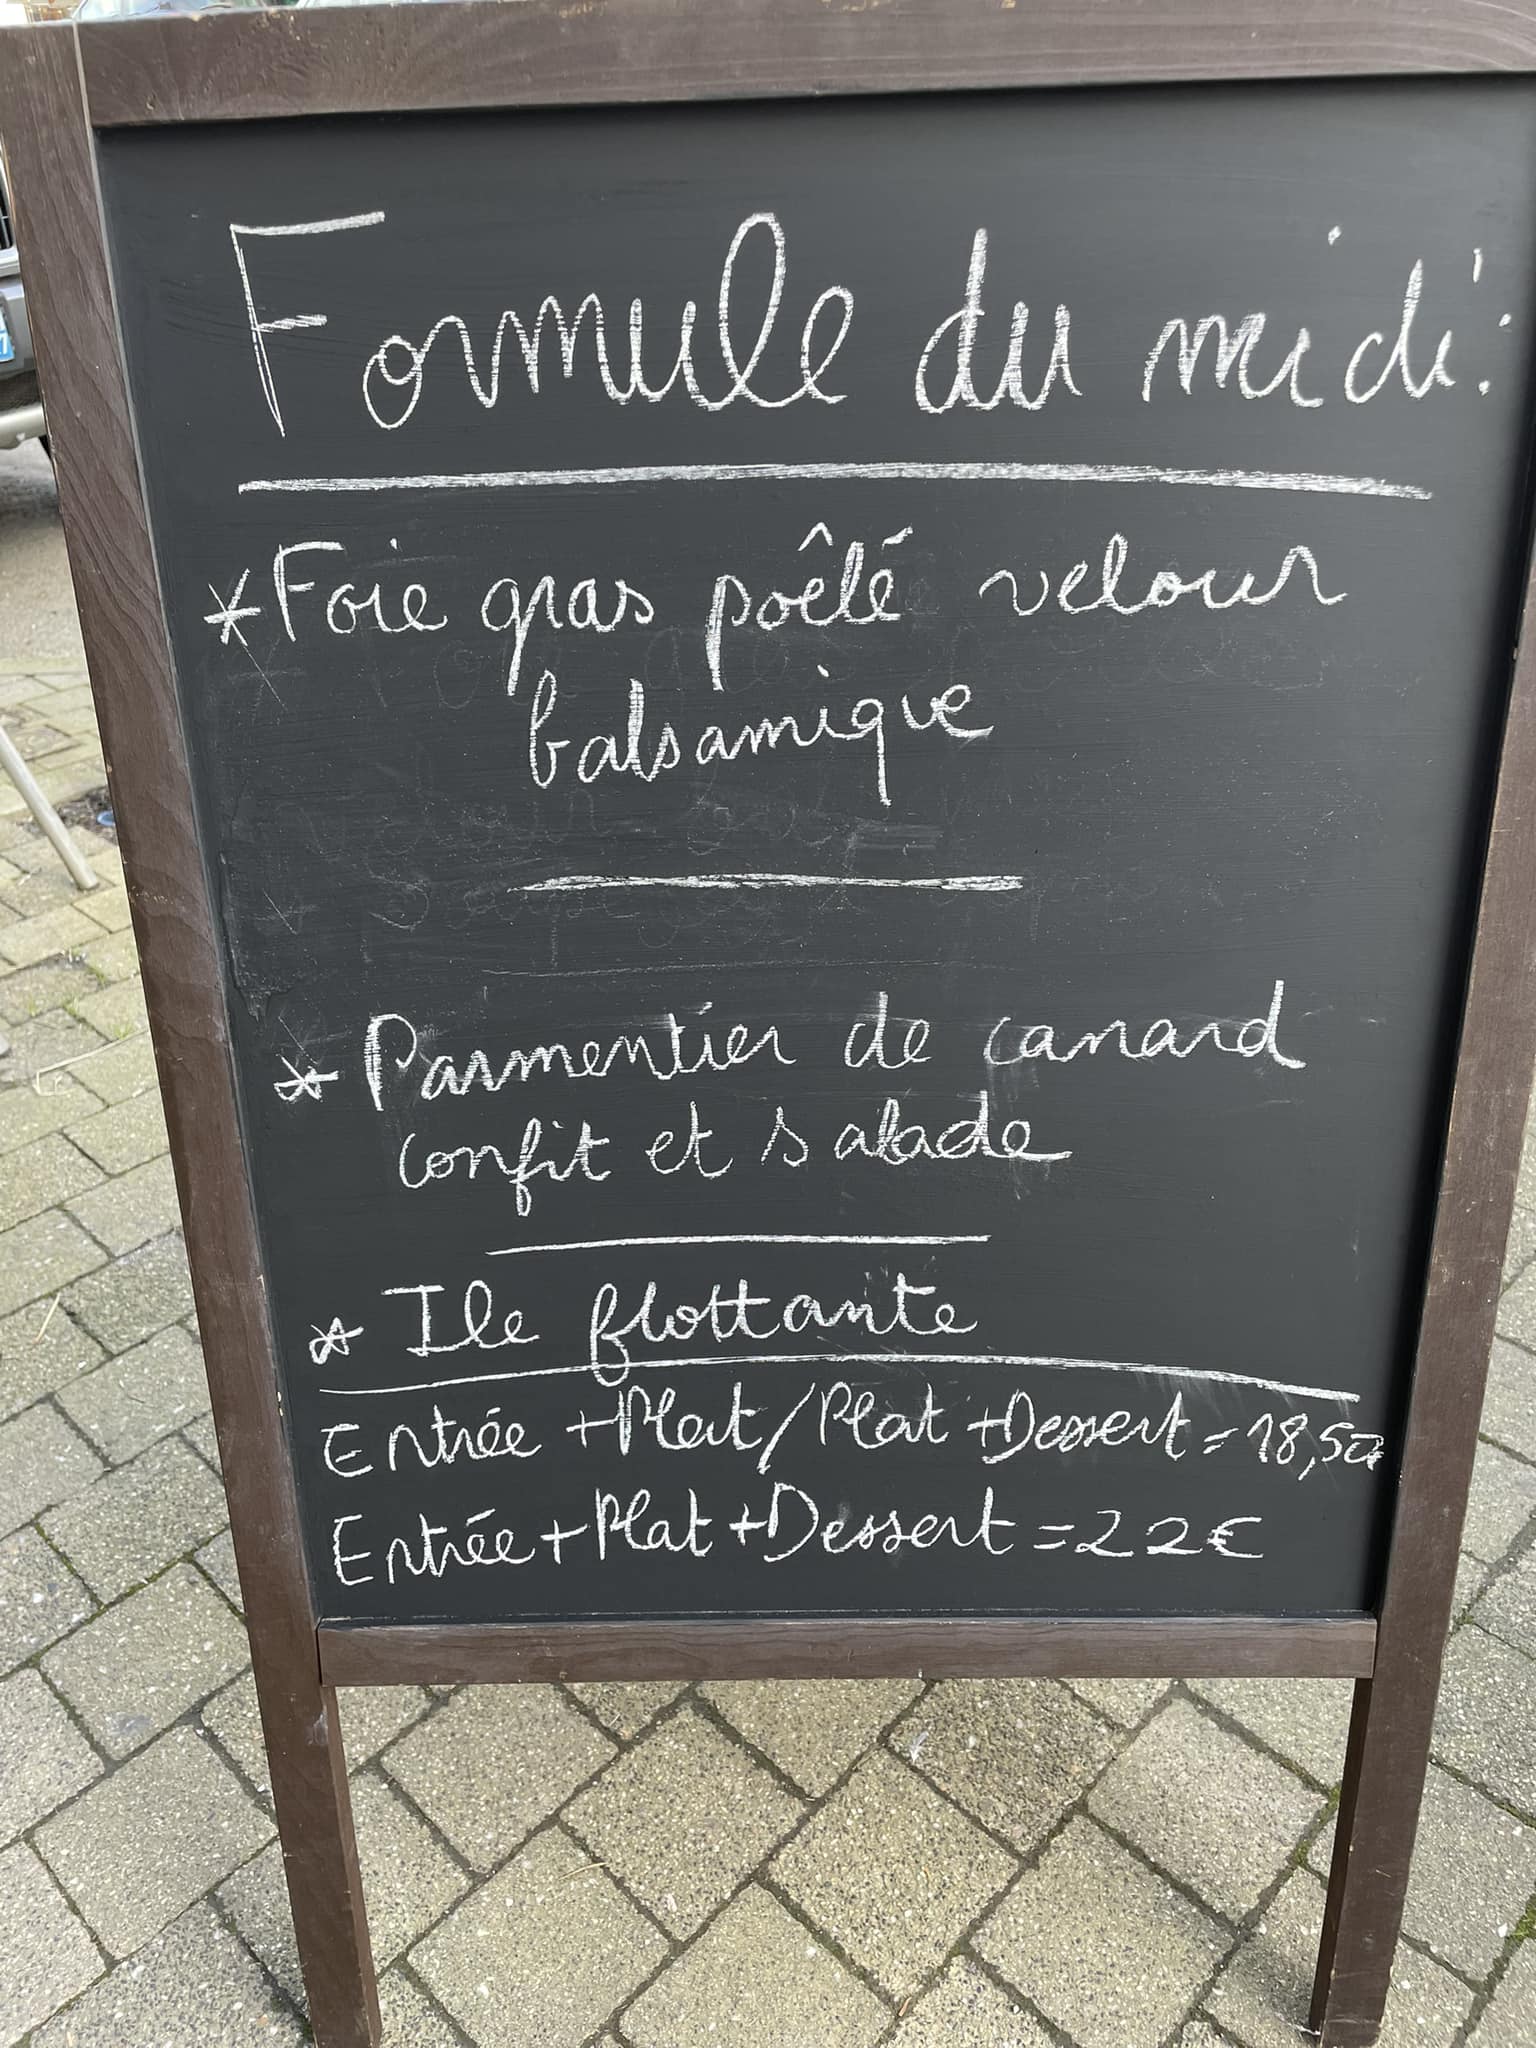 Formule du midi:
* Foie gras poêlé velour
balsamique
* Parmentier de canard
confit et salade
* Ile flottante
Entrée + Plat / Plat + Dessert = 18,50
Entrée + Plat + Dessert = 22€